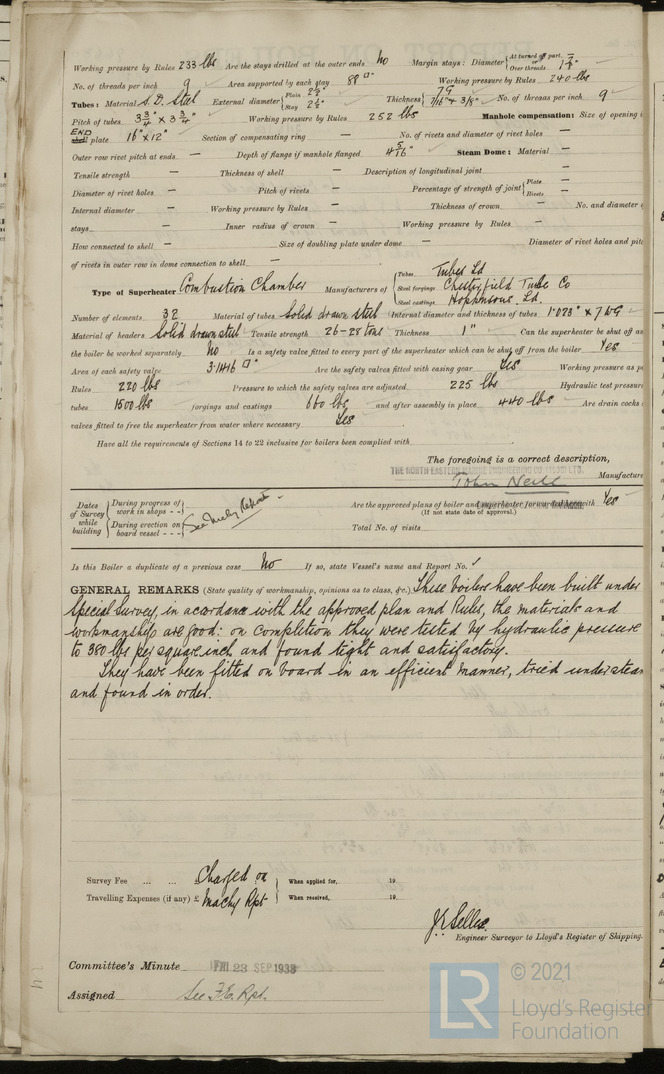 Working pressure by Rules 233 lbs Are the stays drilled at the outer ends No Margin stays: Diameter { At turned off part, Over threads
No. of threads per inch 9 Area supported by each stay 88 □" Working pressure by Rules 240 lbs
Tubes: Material S.D. Steel External diameter { Plain 2½" Stay 2½" Thickness { 7G 7/16" & 3/8" No. of threads per inch 9
Pitch of tubes 3¾" × 3¾" Working pressure by Rules 252 lbs Manhole compensation: Size of opening i
END
shell plate 16" × 12" Section of compensating ring — No. of rivets and diameter of rivet holes —
Outer row rivet pitch at ends — Depth of flange if manhole flanged 4 5/16" Steam Dome: Material —
Tensile strength — Thickness of shell — Description of longitudinal joint —
Diameter of rivet holes — Pitch of rivets — Percentage of strength of joint { Plate — Rivets —
Internal diameter — Working pressure by Rules — Thickness of crown — No. and diameter o
stays — Inner radius of crown — Working pressure by Rules —
How connected to shell — Size of doubling plate under dome — Diameter of rivet holes and pitc
of rivets in outer row in dome connection to shell —
Type of Superheater Combustion Chamber Manufacturers of { Tubes Tubes Ld
Steel forgings Chesterfield Tube Co
Steel castings Hopkinsons Ld.
Number of elements 32 Material of tubes Solid drawn steel Internal diameter and thickness of tubes 1·023" × 7 WG
Material of headers Solid drawn steel Tensile strength 26-28 tons Thickness 1" Can the superheater be shut off as
the boiler be worked separately No Is a safety valve fitted to every part of the superheater which can be shut off from the boiler Yes
Area of each safety valve 3·1416 □" Are the safety valves fitted with easing gear Yes Working pressure as pe
Rules 220 lbs Pressure to which the safety valves are adjusted 225 lbs Hydraulic test pressure
tubes 1500 lbs forgings and castings 660 lbs and after assembly in place 440 lbs Are drain cocks
valves fitted to free the superheater from water where necessary Yes
Have all the requirements of Sections 14 to 22 inclusive for boilers been complied with
The foregoing is a correct description,
THE NORTH EASTERN MARINE ENGINEERING CO. (1938) LTD.
John Neill Manufacture
Dates of Survey while building { During progress of work in shops - - During erection on board vessel - - - } See Mchy Report
Are the approved plans of boiler and superheater forwarded herewith Yes
(If not state date of approval.)
Total No. of visits
Is this Boiler a duplicate of a previous case No If so, state Vessel's name and Report No.
GENERAL REMARKS (State quality of workmanship, opinions as to class, &c.) These boilers have been built under
Special Survey, in accordance with the approved plan and Rules, the materials and
workmanship are good: on completion they were tested by hydraulic pressure
to 380 lbs per square inch and found tight and satisfactory.
They have been fitted on board in an efficient manner, tried under steam
and found in order.
Survey Fee ... ... £ Charged on { When applied for, 19
Travelling Expenses (if any) £ Machy Rpt { When received, 19
J R Sellex
Engineer Surveyor to Lloyd's Register of Shipping.
Committee's Minute FRI 23 SEP 1938
Assigned See F.E. Rpt.
LR © 2021
Lloyd's Register
Foundation